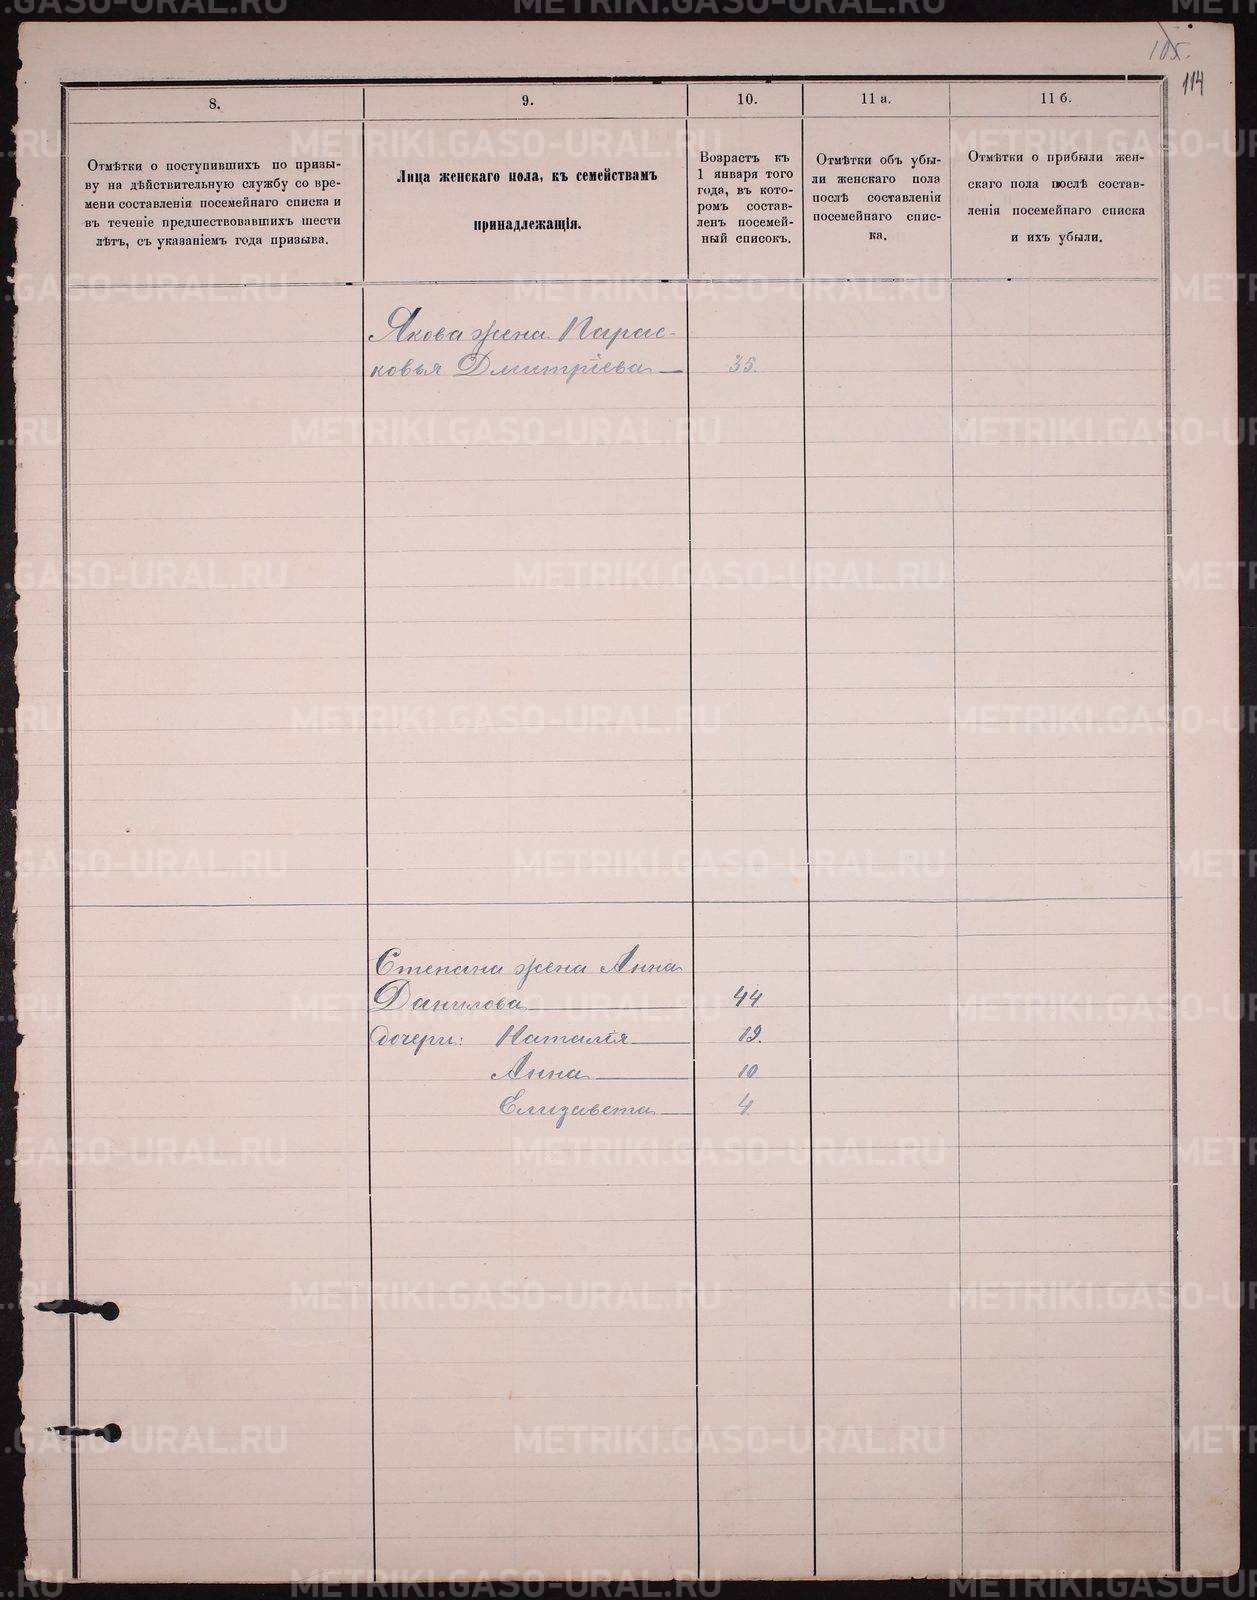 105.
114
8.
9.
10.
11 а.
11 б.
Отмѣтки о поступившихъ по призы-
ву на дѣйствительную службу со вре-
мени составленія посемейнаго списка и
въ теченіе предшествовавшихъ шести
лѣтъ, съ указаніемъ года призыва.
Лица женскаго пола, къ семействамъ
принадлежащія.
Возрастъ къ
1 января того
года, въ кото-
ромъ состав-
ленъ посемей-
ный списокъ.
Отмѣтки объ убы-
ли женскаго пола
послѣ составленія
посемейнаго спис-
ка.
Отмѣтки о прибыли жен-
скаго пола послѣ состав-
ленія посемейнаго списка
и ихъ убыли.
Якова жена Парас-
ковья Дмитріева 35.
Степана жена Анна
Данилова 44
дочери: Наталія 19.
Анна 10
Елизавета 4
METRIKI.GASO-URAL.RU